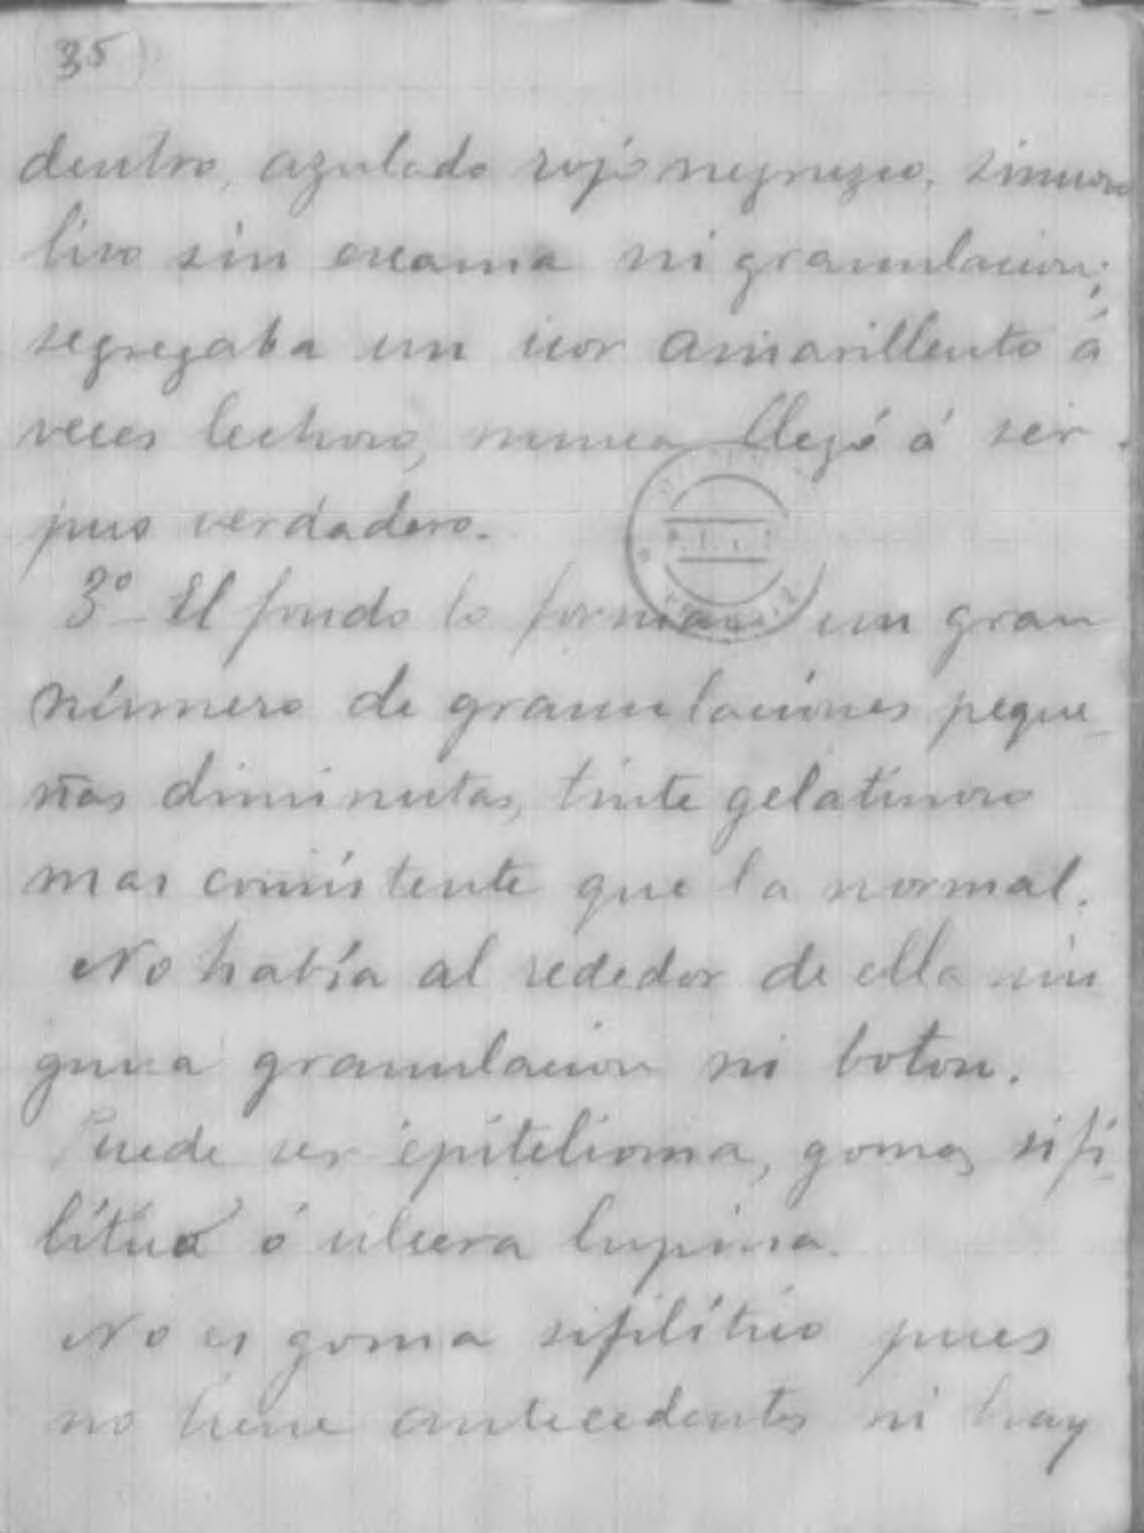 35
dentro, azulado rojo negruzco, sinuoso
liso sin escama ni granulacion;
segregaba un icor amarillento á
veces lechoso, nunca llegó á ser
pus verdadero.
3º - El fondo lo forman un gran
número de granulaciones peque-
ñas diminutas, tinte gelatinoso
mas consistente que la normal.
No había al rededor de ella nin
guna granulacion ni boton.
Puede ser epitelioma, goma sifi-
lítico ó ulcera lupina.
No es goma sifilítico pues
no tiene antecedentes ni hay